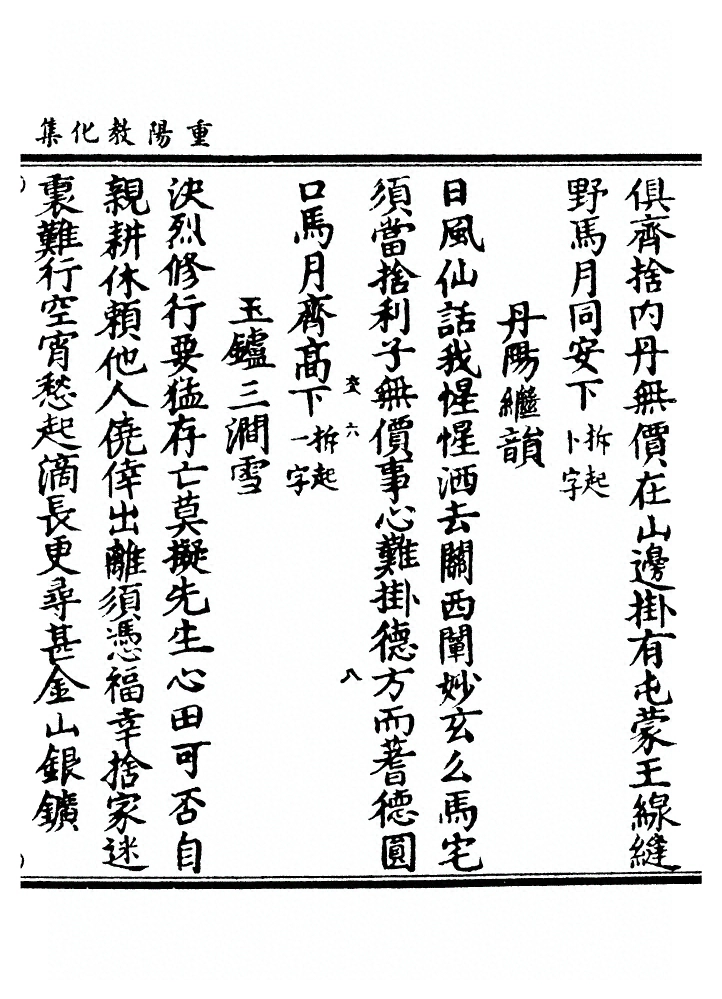 重陽教化集
俱齊捨内丹無價在山邊掛有屯蒙王線縫
野馬月同安下拆起卜字
丹陽繼韻
日風仙話我惺惺洒去關西闡妙玄么馬宅
須當捨利子無價事心難掛德方而蓍德圓
口馬月齊高下拆起一字
六
八
玉鑪三澗雪
決烈修行要猛存亡莫擬先生心田可否自
親耕休頼他人僥倖出離須憑福幸捨家迷
裏難行空宵愁起滴長更尋甚金山銀鑛